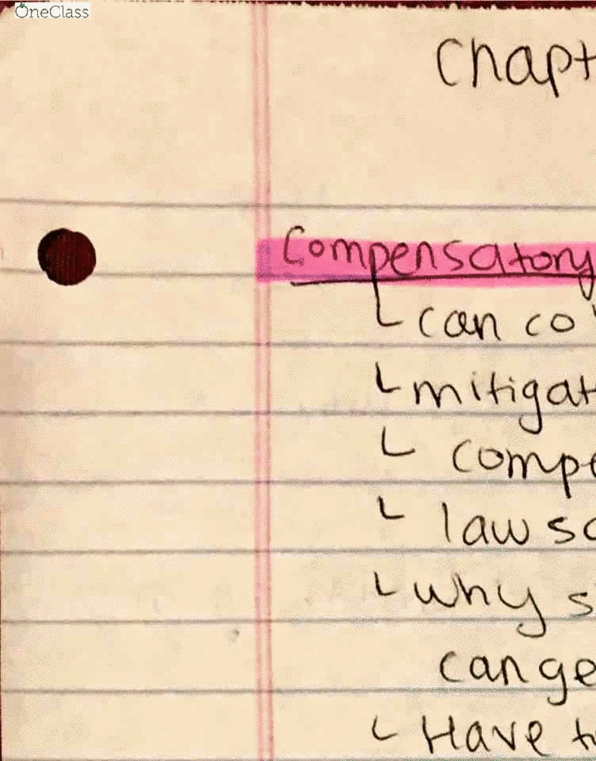 OneClass
Chapt
Compensatory
can co
mitigat
compe
law so
why s
can ge
Have t